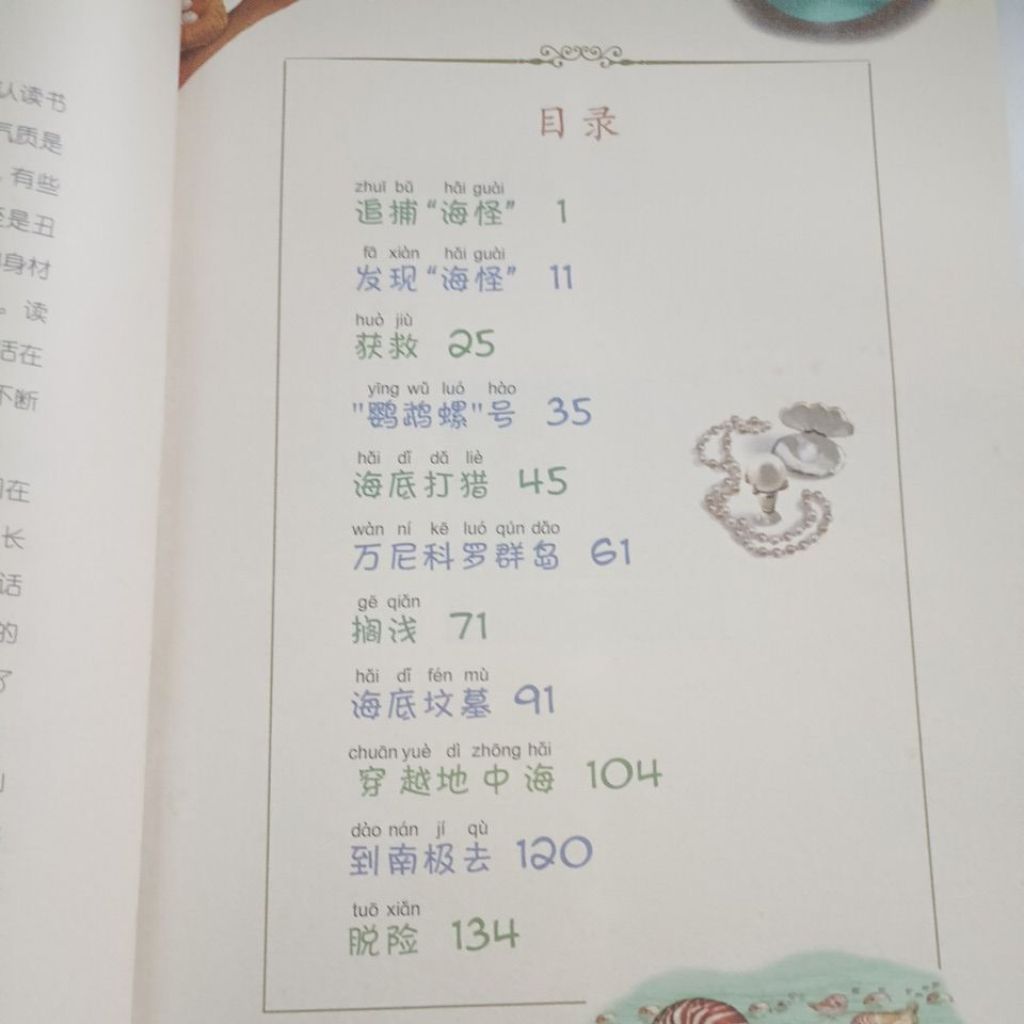 认读书
气质是
有些
至是丑
身材
。读
活在
不断
在
长
话
的
了
目录
zhuī bǔ hǎi guài
追捕“海怪” 1
fā xiàn hǎi guài
发现“海怪” 11
huò jiù
获救 25
yīng wǔ luó hào
"鹦鹉螺"号 35
hǎi dǐ dǎ liè
海底打猎 45
wàn ní kē luó qún dǎo
万尼科罗群岛 61
gē qiǎn
搁浅 71
hǎi dǐ fén mù
海底坟墓 91
chuān yuè dì zhōng hǎi
穿越地中海 104
dào nán jí qù
到南极去 120
tuō xiǎn
脱险 134